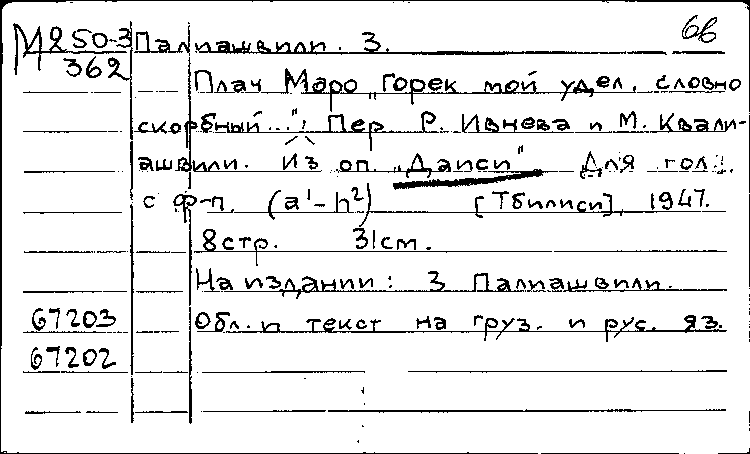 М250-3 Палиашвили. З. 66
362
Плач Маро „Горек мой удел, словно
скорбный..."; Пер. Р. Ивнева и М. Квали-
ашвили. Из оп. „Даиси" Для гол.
с ф-п. (a¹-h²) [Тбилиси], 1947.
8стр. 31см.
На издании: З Палиашвили.
67203 Обл. и текст на груз. и рус. яз.
67202